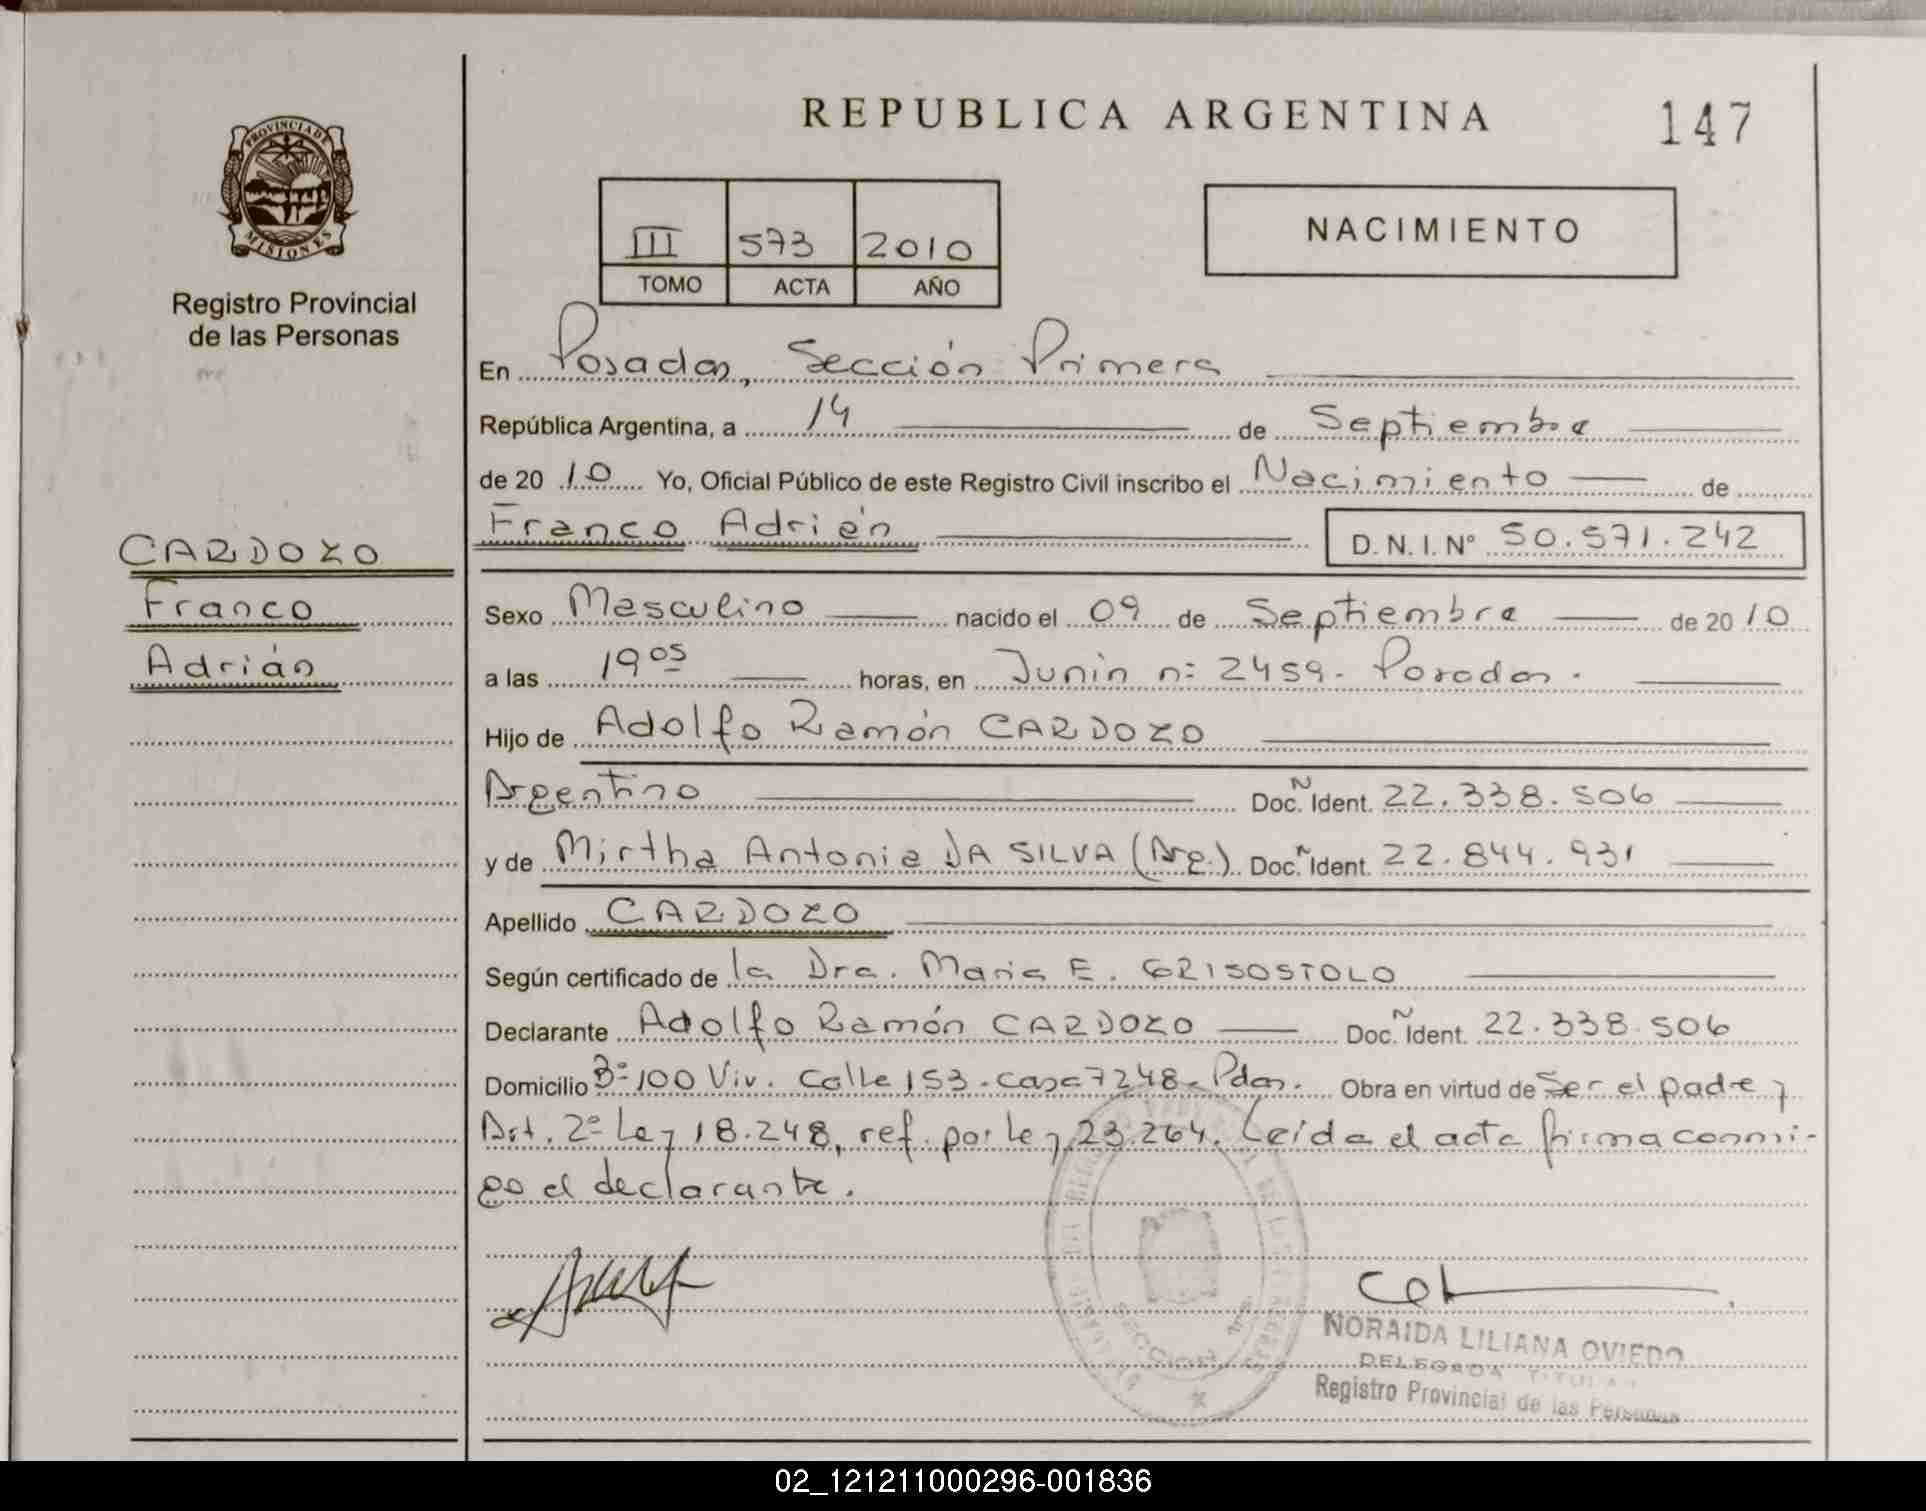 REPUBLICA ARGENTINA
147
PROVINCIA DE
MISIONES
Registro Provincial
de las Personas
III 573 2010
TOMO ACTA AÑO
NACIMIENTO
En Posadas, Sección Primera
República Argentina, a 14 de Septiembre
de 2010 Yo, Oficial Público de este Registro Civil inscribo el Nacimiento de
Franco Adrián D. N. I. N° 50.571.242
CARDOZO
Franco
Adrián
Sexo Masculino nacido el 09 de Septiembre de 2010
a las 19 05 horas, en Junin n: 2459- Posadas.
Hijo de Adolfo Ramón CARDOZO
Argentino Doc. Ñ Ident. 22.338.506
y de Mirtha Antonia DA SILVA (Arg.) Doc. Ñ Ident. 22.844.931
Apellido CARDOZO
Según certificado de la Dra. Maria E. GRISOSTOLO
Declarante Adolfo Ramón CARDOZO Doc. Ñ Ident. 22.338.506
Domicilio B° 100 Viv. Calle 153-casa 7248- Pdas. Obra en virtud de Ser el padre y
Art. 2° Ley 18.248, ref. por ley 23.264. Leída el acta firma conmi-
go el declarante.
SECCION 1ra.
NORAIDA LILIANA OVIEDO
DELEGADA TITULAR
Registro Provincial de las Personas
02_121211000296-001836